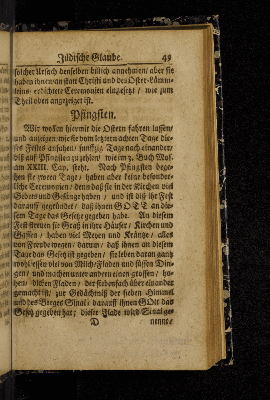 Jüdische Glaube. 49
solcher Ursach denselben billich annehmen/ aber sie
haben ihnen/ an statt Christi und des Oster-Lämm-
leins/ erdichtete Ceremonien eingesetzt/ wie zum
Theil oben angezeiget ist.
Pfingsten.
Wir wollen hiermit die Ostern fahren lassen/
und anzeigen/ wie sie von letzten achten Tage die-
ses Festes anfahen/ funffzig Tage nach einander/
biß auf Pfingsten zu zehlen/ wie im 3. Buch Mos.
am XXIII. Cap. steht. Nach Pfingsten bege-
hen sie zween Tage/ haben aber keine besonder-
liche Ceremonien/ denn daß sie in der Kirchen viel
Gebets und Gesänge haben/ und ist diß ihr Fest
darauff gegründet/ daß ihnen GOTT an die-
sem Tage das Gesetz gegeben habe. An diesem
Fest streuen sie Graß in ihre Häuser/ Kirchen und
Gassen/ haben viel Meyen und Kräntze/ alles
von Freude wegen/ darum/ daß ihnen an diesem
Tage das Gesetz ist gegeben/ sie leben daran gantz
wohl/ essen viel von Milch/ Fladen und süssen Din-
gen/ und machen unter andern einen grossen/ ho-
hen/ dicken Fladen/ der siebenfach über einander
gemacht ist/ zur Gedächtniß der sieben Himmel
und des Berges Sinai/ darauff ihnen GOtt das
Gesetz gegeben hat/ dieser Flade wird Sinai ge-
D nennt/